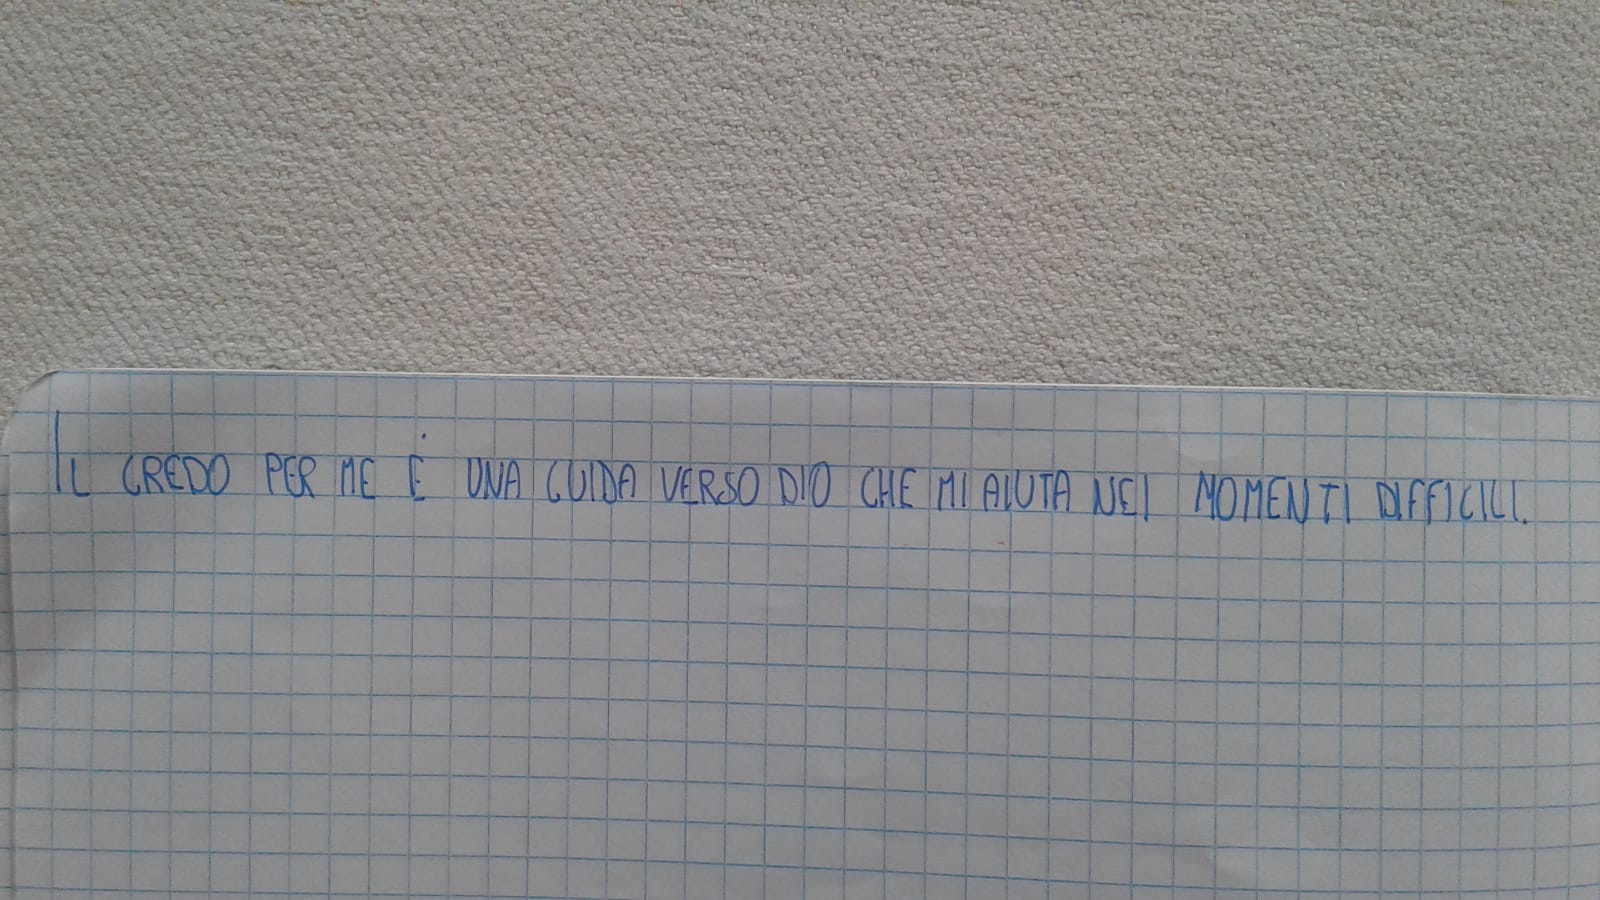 IL CREDO PER ME È UNA GUIDA VERSO DIO CHE MI AIUTA NEI MOMENTI DIFFICILI.